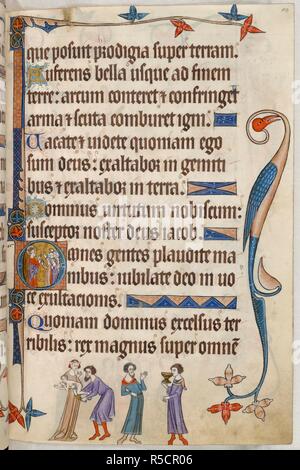 que posuit prodigia super terram.
Auferens bella usque ad finem
terre: arcum conteret & confringet
arma & scuta comburet igni.
Uacate & uidete quoniam ego
sum deus: exaltabor in genti
bus & exaltabor in terra.
Dominus uirtutum nobiscum:
susceptor noster deus iacob.
Omnes gentes plaudite ma
nibus: iubilate deo in uo
ce exultacionis.
Quoniam dominus excelsus ter
ribilis: rex magnus super omnē